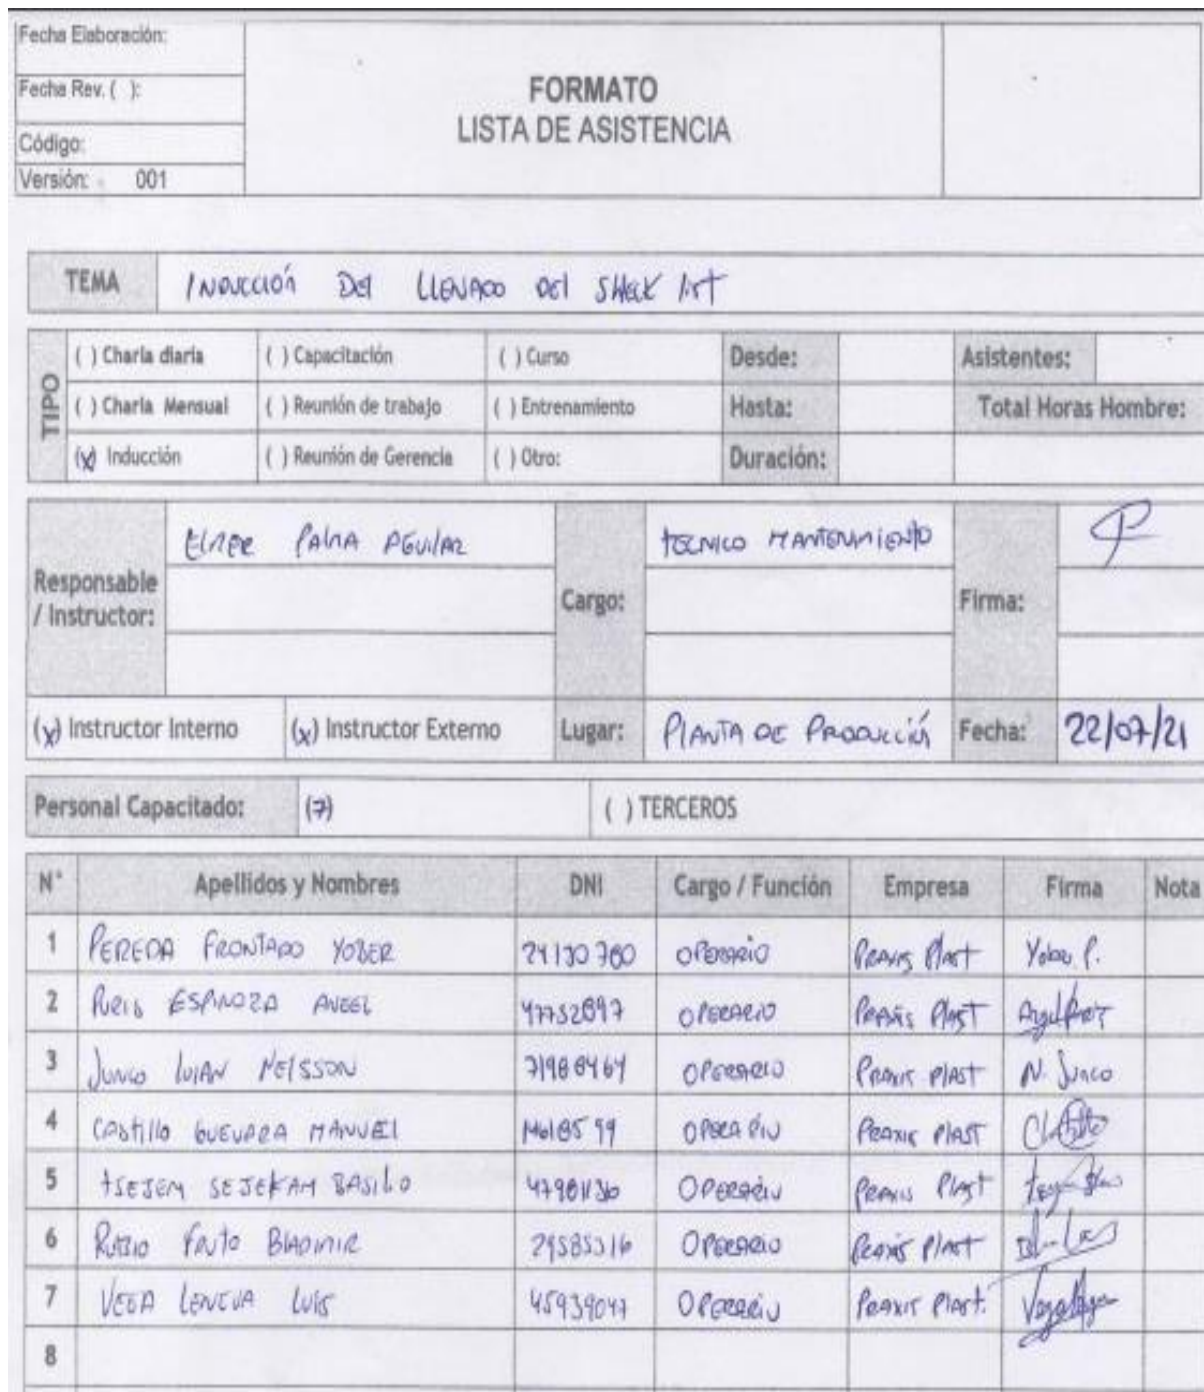 Fecha Elaboración:
Fecha Rev. ( ):
Código:
Versión: 001
FORMATO
LISTA DE ASISTENCIA
TEMA INDUCCIÓN Del LLENADO Del SHECK list
TIPO
( ) Charla diaria ( ) Capacitación ( ) Curso Desde: Asistentes:
( ) Charla Mensual ( ) Reunión de trabajo ( ) Entrenamiento Hasta: Total Horas Hombre:
(x) Inducción ( ) Reunión de Gerencia ( ) Otro: Duración:
Responsable / Instructor: ELMER PALMA AGUILAR Cargo: TECNICO MANTENIMIENTO Firma:
(x) Instructor Interno (x) Instructor Externo Lugar: PLANTA DE PRODUCCIÓN Fecha: 22/07/21
Personal Capacitado: (7) ( ) TERCEROS
N° Apellidos y Nombres DNI Cargo / Función Empresa Firma Nota
1 PEREDA FRONTADO YOBER OPERARIO PRAXIS PlAST Yober P.
2 ESPINOZA ANGEL OPERARIO PRAXIS PlAST
3 JUNCO NEISSON OPERARIO PRAXIS PlAST N. Junco
4 CASTILLO GUEVARA MANUEL OPERARIO PRAXIS PlAST
5 TSEJEM SEJEKAM BASILO OPERARIO PRAXIS PlAST
6 RUBIO BLADIMIR OPERARIO PRAXIS PlAST
7 VEGA LUIS 45939047 OPERARIO PRAXIS PlAST.
8